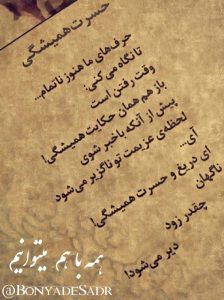 حسرت همیشگی
حرف‌های ما هنوز ناتمام...
تا نگاه می کنی:
وقت رفتن است
باز هم همان حکایت همیشگی!
پیش از آنکه باخبر شوی
لحظه‌ی عزیمت تو ناگزیر می‌شود
آی...
ای دریغ و حسرت همیشگی!
ناگهان
چقدر زود
دیر می‌شود!
همه با هم میتوانیم
@BonyadeSadr